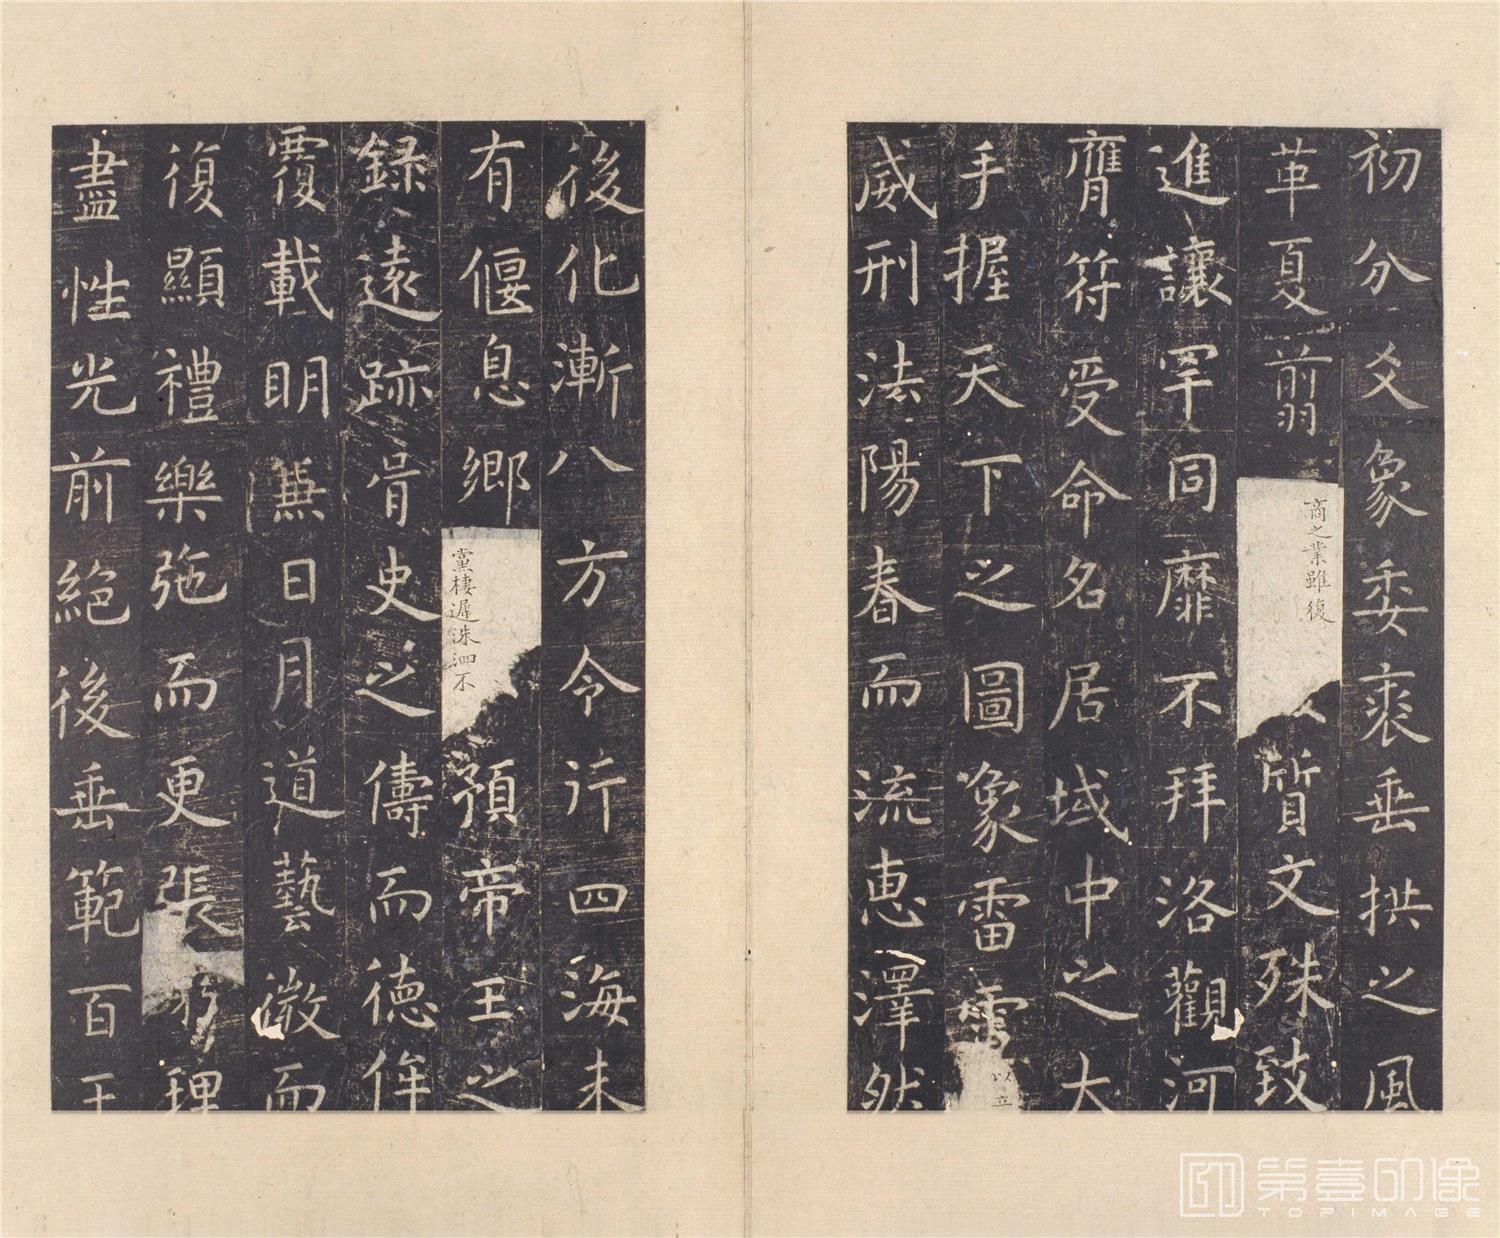 初分爻象委裘垂拱之風
革夏翦
商之業雖復
質文殊致
進讓罕同靡不拜洛觀河
膺符受命名居域中之大
手握天下之圖象雷電
以立
威刑法陽春而流恵澤然
後化漸八方令行四海未
有偃息鄉
黨棲遲洙泗不
預帝王之
錄遠跡胥史之儔而德侔
覆載明兼日月道藝微而
復顯禮樂弛而更張窮理
盡性光前絕後垂範百王
第壹印像
TOPIMAGE